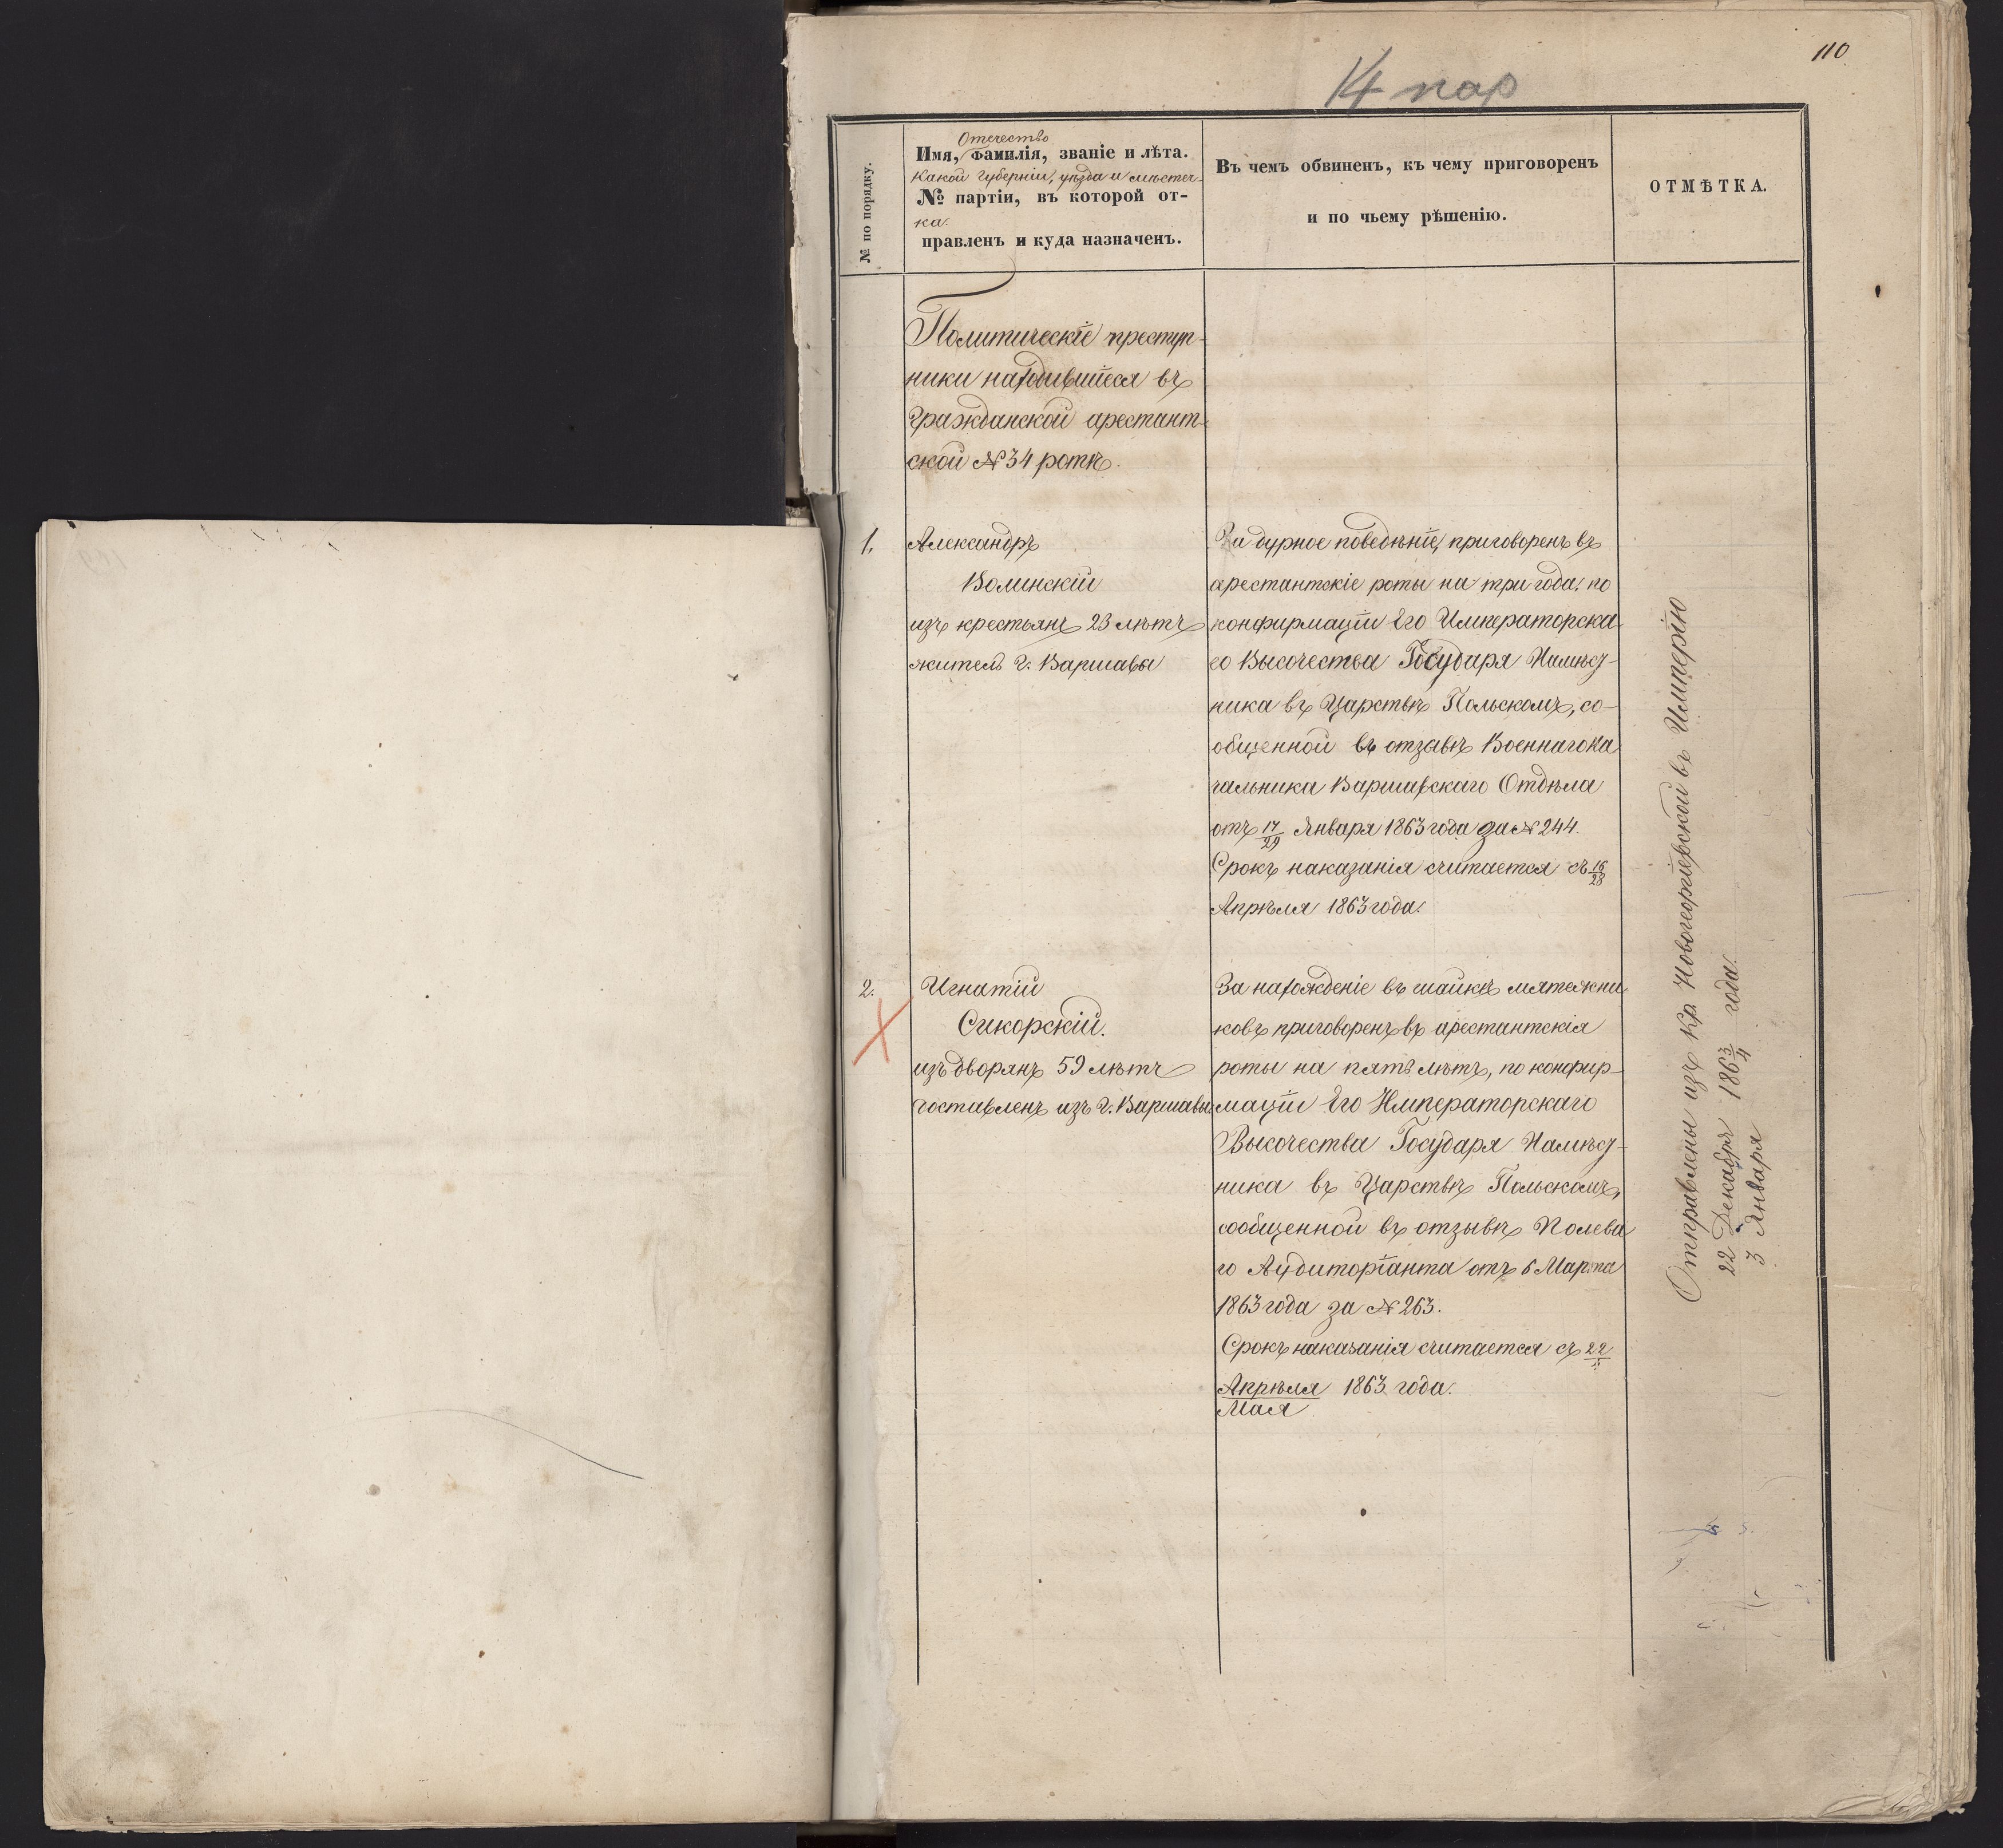 110
14 пар
№ по порядку.
Отечество
Имя, фамилія, званіе и лѣта.
какой губерніи, уѣзда и мѣстеч-
№ партіи, въ которой от-
ка.
правленъ и куда назначенъ.
Въ чемъ обвиненъ, къ чему приговоренъ
и по чьему рѣшенію.
ОТМѢТКА.
Политическіе преступ-
ники находившіеся въ
Гражданской арестант-
ской №34 ротѣ.
1.
Александръ
Волинскій
изъ крестьянъ 23 лѣтъ
житель г. Варшавы
За дурное поведѣніе, приговоренъ въ
арестантскіе роты на три года, по
конфирмаціи Его Императорска-
го Высочества Государя Намѣст-
ника въ Царствѣ Польскомъ, со-
общенной въ отзывѣ Военнаго На
чальника Варшавскаго Отдѣла
отъ 17/29 Января 1863 года за №244.
Срокъ наказанія считается съ 16/28
Апрѣля 1863 года.
2.
Игнатій
Сикорскій.
изъ дворянъ 59 лѣтъ
доставленъ изъ г. Варшавы
За нахожденіе въ шайкѣ мятежни
ковъ приговоренъ въ арестантскія
роты на пять лѣтъ, по конфир-
маціи Его Императорскаго
Высочества Государя Намѣст-
ника въ Царствѣ Польскомъ,
сообщенной въ отзывѣ Полева
го Аудиторіанта отъ 6 Марта
1863 года за №263.
Срокъ наказанія считается съ 22/
Апрѣля 1863 года.
Мая
Отправлены изъ Кр. Новогеоргіевской въ Имперію
22 Декабря 1863/4 года.
3 Января